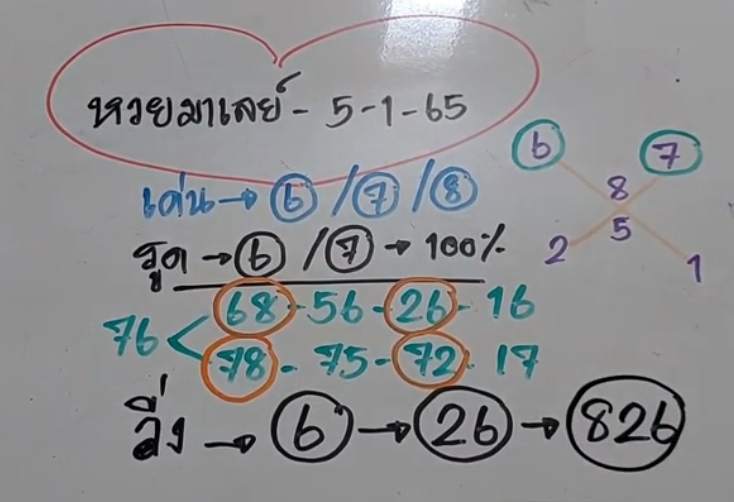 หวยมาเลย์ - 5-1-65
6 7
8
5
2 1
เด่น → 6 / 7 / 8
รูด → 6 / 7 → 100%
68 - 56 - 26 - 16
76 <
78 - 75 - 72 - 17
วิ่ง → 6 → 26 → 826